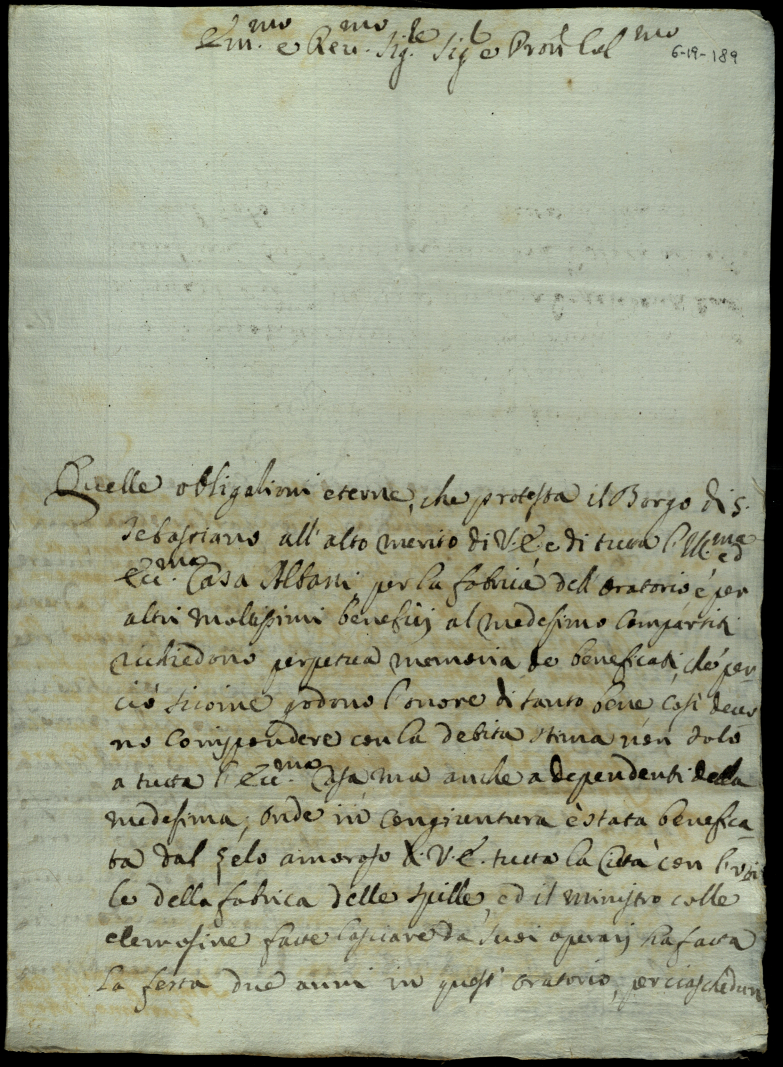 Em.mo e Rev.mo Sig.re Sig.re e Pron Col.mo
6-19-189
Quelle obligationi eterne, che protesta il Borgo di S.
Sebastiano all'alto merito di V.E. e di tutta l'Ill.ma ed
Ecc.ma Casa Albani, per la fabrica dell'oratorio e per
altri moltissimi beneficij al medesimo compartiti
richiedono perpetua memoria de beneficati, che per-
ciò sicome godono l'onore di tanto bene così devo-
no corrispondere con la debita stima non solo
a tutta l'Ecc.ma Casa, ma anche a dependenti della
medesima, onde in congiuntura è stata benefica-
ta dal zelo amoroso di V.E. tutta la Città con l'uti-
le della fabrica delle spille, ed il ministro colle
elemosine fatte lasciare da suoi operarij ha fatta
la festa due anni in quest'oratorio, per ciaschedun